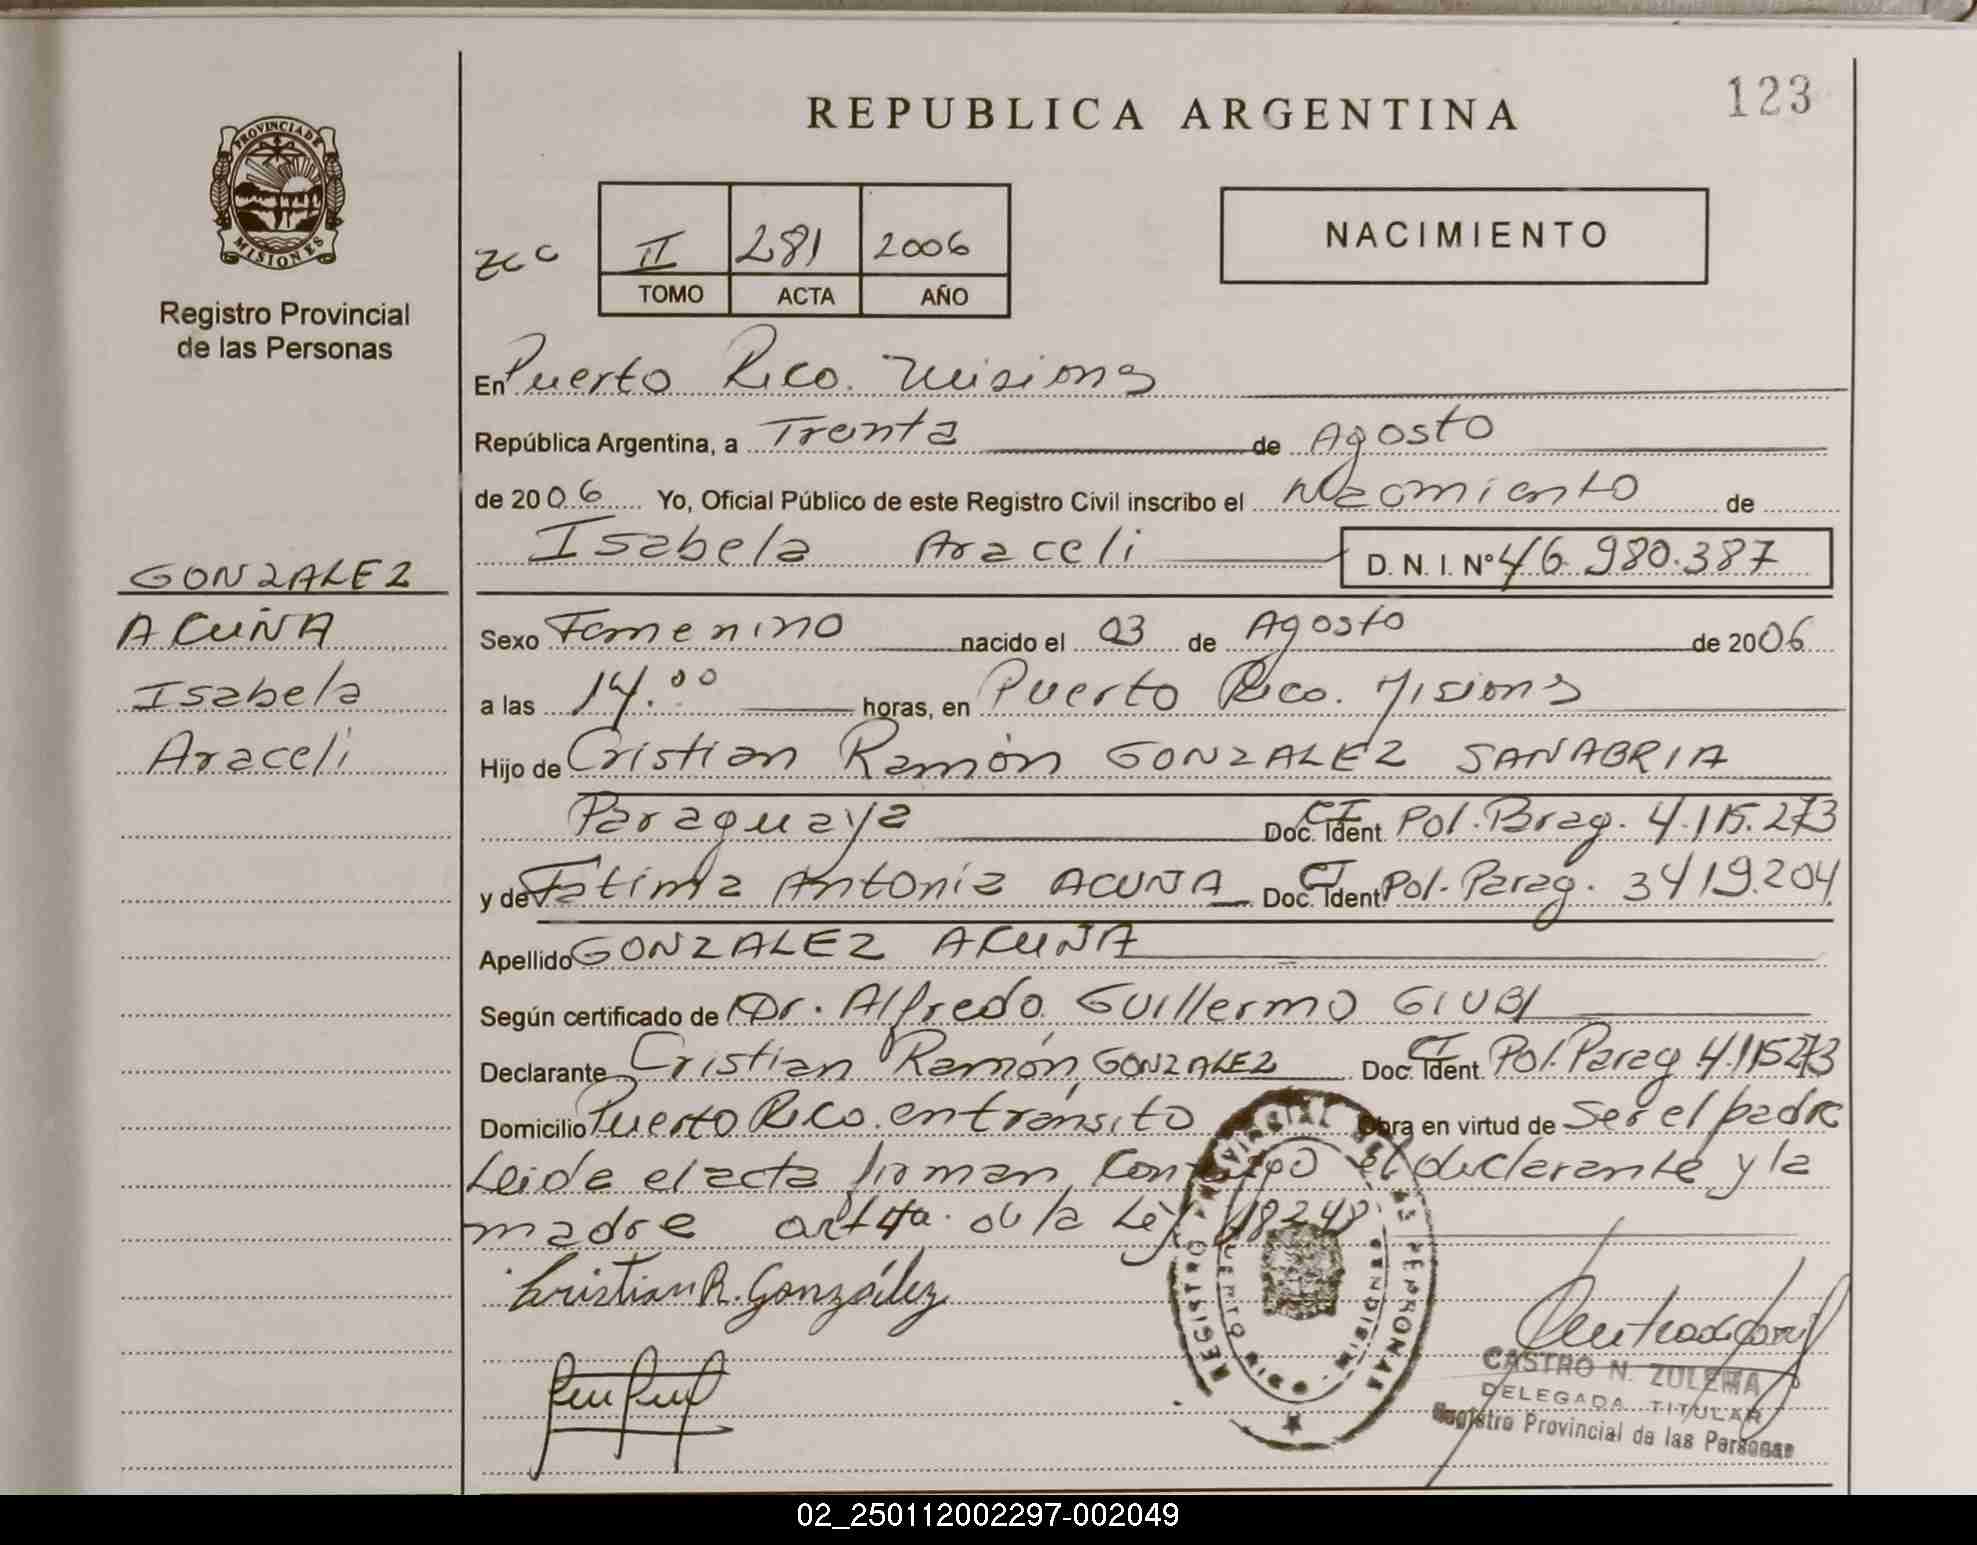 REPUBLICA ARGENTINA
123
PROVINCIA DE
MISIONES
Registro Provincial
de las Personas
II 281 2006
TOMO ACTA AÑO
NACIMIENTO
En Puerto Rico. Misiones
República Argentina, a Treinta de Agosto
de 2006 Yo, Oficial Público de este Registro Civil inscribo el Nacimiento de
Isabela Araceli D. N. I. Nº 46.980.387
GONZALEZ
ACUÑA
Isabela
Araceli
Sexo Femenino nacido el 03 de Agosto de 2006
a las 14.00 horas, en Puerto Rico. Misiones
Hijo de Cristian Ramón GONZALEZ SANABRIA
Paraguaya Doc. Ident. CI Pol. Parag. 4.115.273
y de Fátima Antonia ACUÑA Doc. Ident. CI Pol. Parag. 3419.204
Apellido GONZALEZ ACUÑA
Según certificado de Dr. Alfredo Guillermo GIUBI
Declarante Cristian Ramón GONZALEZ Doc. Ident. CI Pol. Parag 4.115273
Domicilio Puerto Rico. en tránsito Obra en virtud de Ser el padre
Leida el acta firman conmigo el declarante y la
madre art 4ta. de la Ley 18248
Cristian R. González
REGISTRO PROVINCIAL DE LAS PERSONAS
PUERTO RICO
CASTRO N. ZULEMA
DELEGADA TITULAR
Registro Provincial de las Personas
02_250112002297-002049